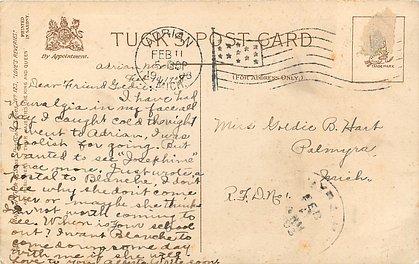 TUCK'S POST CARD
By Appointment.
(FOR ADDRESS ONLY.)
ADRIAN
FEB 11
MICH.
TRADE MARK
Adrian,
Dear Friend Goldie:
I have had
neuralgia in my face all
day I caught cold the night
I went to Adrian, I was
foolish for going. But
wanted to see "Josephine"
once more. Just wrote a
postal to Blanche, I don't
see why she don't come
over or maybe she thinks
I'm not worth coming to
see. When is your school
out? I want Blanche to
come down some day
with me if she will.
Love to you all
soon.
Miss Goldie B. Hart
Palmyra
Mich.
R.F.D. No 1
FEB